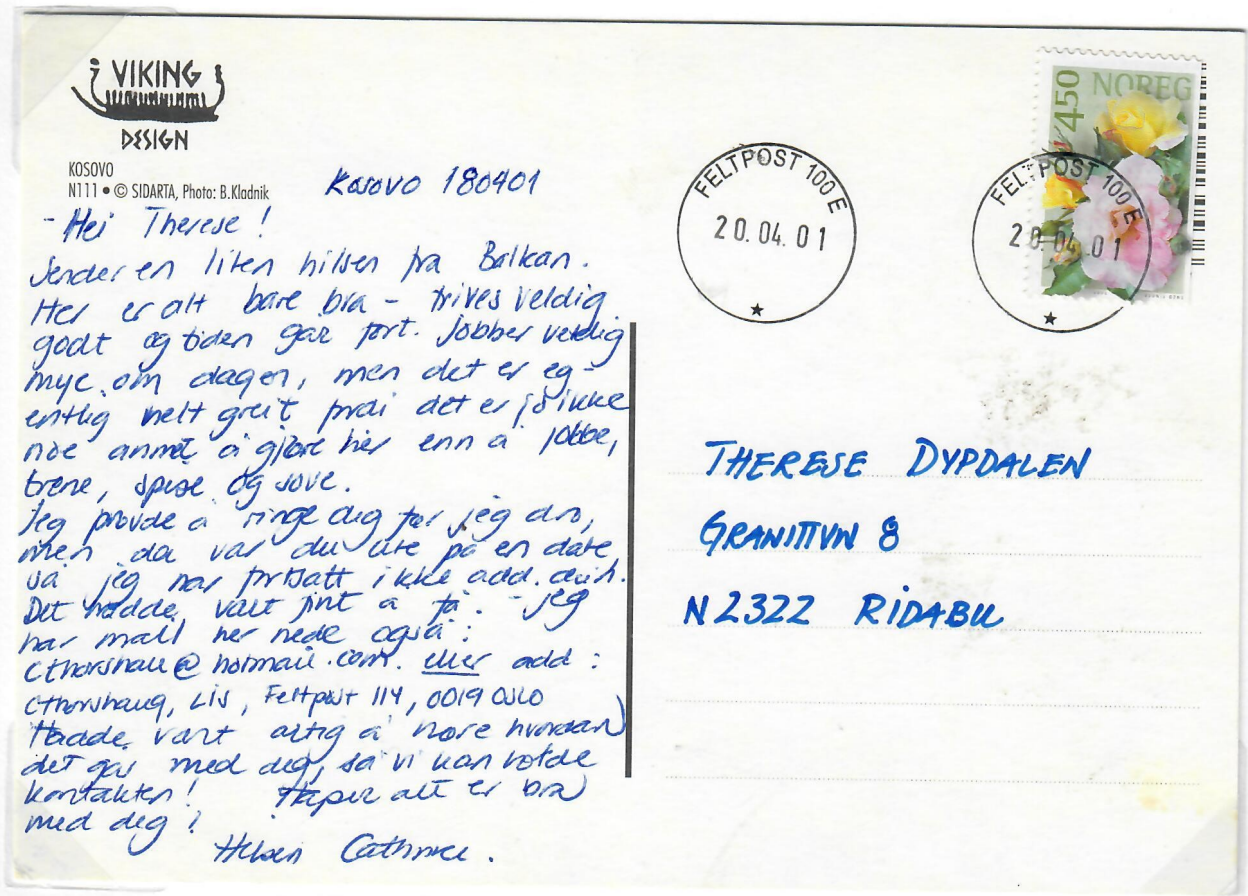 VIKING
DESIGN
KOSOVO
N111 • © SIDARTA, Photo: B.Kladnik
Kosovo 180401
- Hei Therese!
Sender en liten hilsen fra Balkan.
Her er alt bare bra - trives veldig
godt og tiden går fort. Jobber veldig
mye om dagen, men det er eg-
entlig helt greit fordi det er jo ikke
noe annet å gjøre her enn å jobbe,
trene, spise og sove.
Jeg prøvde å ringe deg før jeg dro,
men da var du ute på en date,
så jeg har fortsatt ikke add. din.
Det hadde vært fint å få. - Jeg
har mail her nede også:
@hotmail.com. eller add:
Feltpost 114, 0019 OSLO
Hadde vært artig å høre hvordan
det går med deg, så vi kan holde
kontakten! Håper alt er bra
med deg!
Hilsen
FELTPOST 100 E
20.04.01
NOREG
450
FELTPOST 100 E
20.04.01
THERESE DYPDALEN
8
N 2322 RIDABU